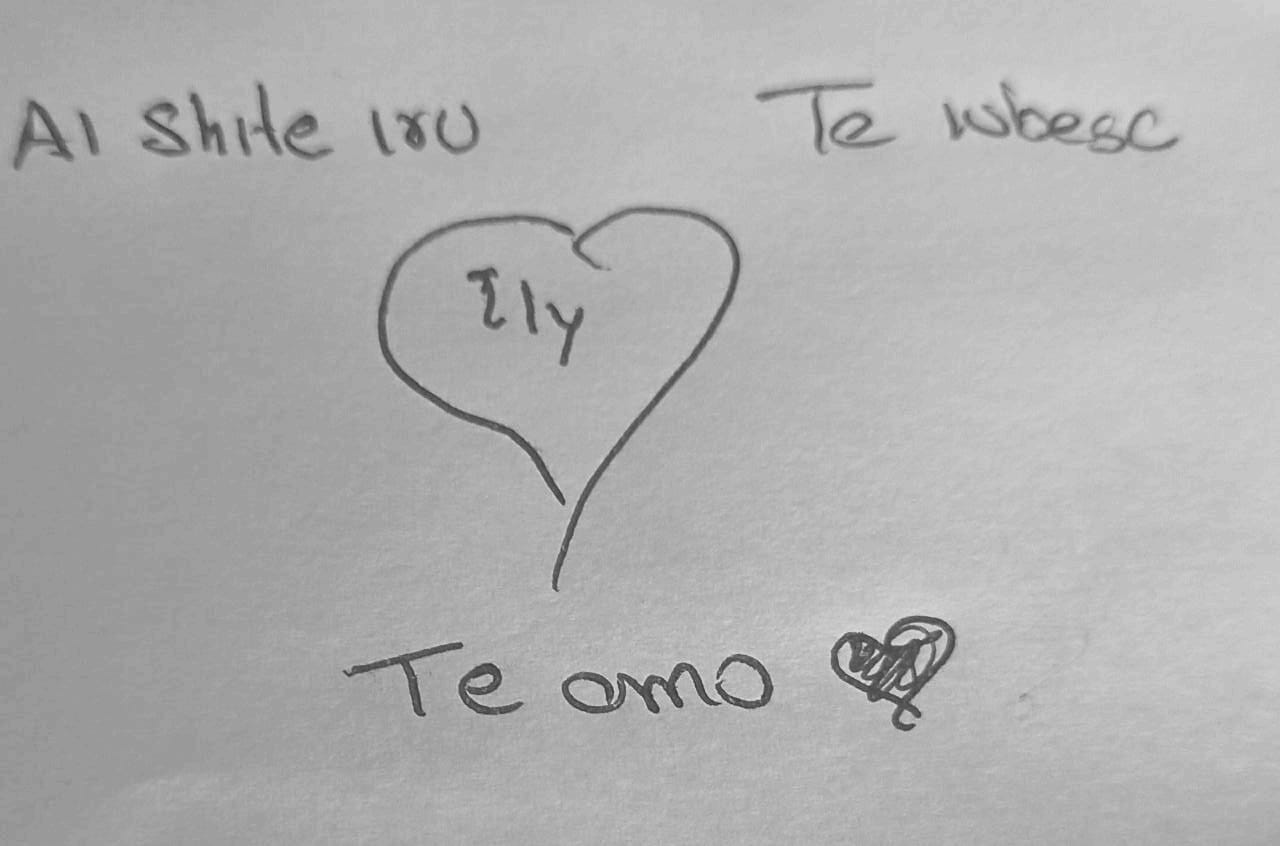 AI Shite Iru
Te iubesc
Ily
Te amo